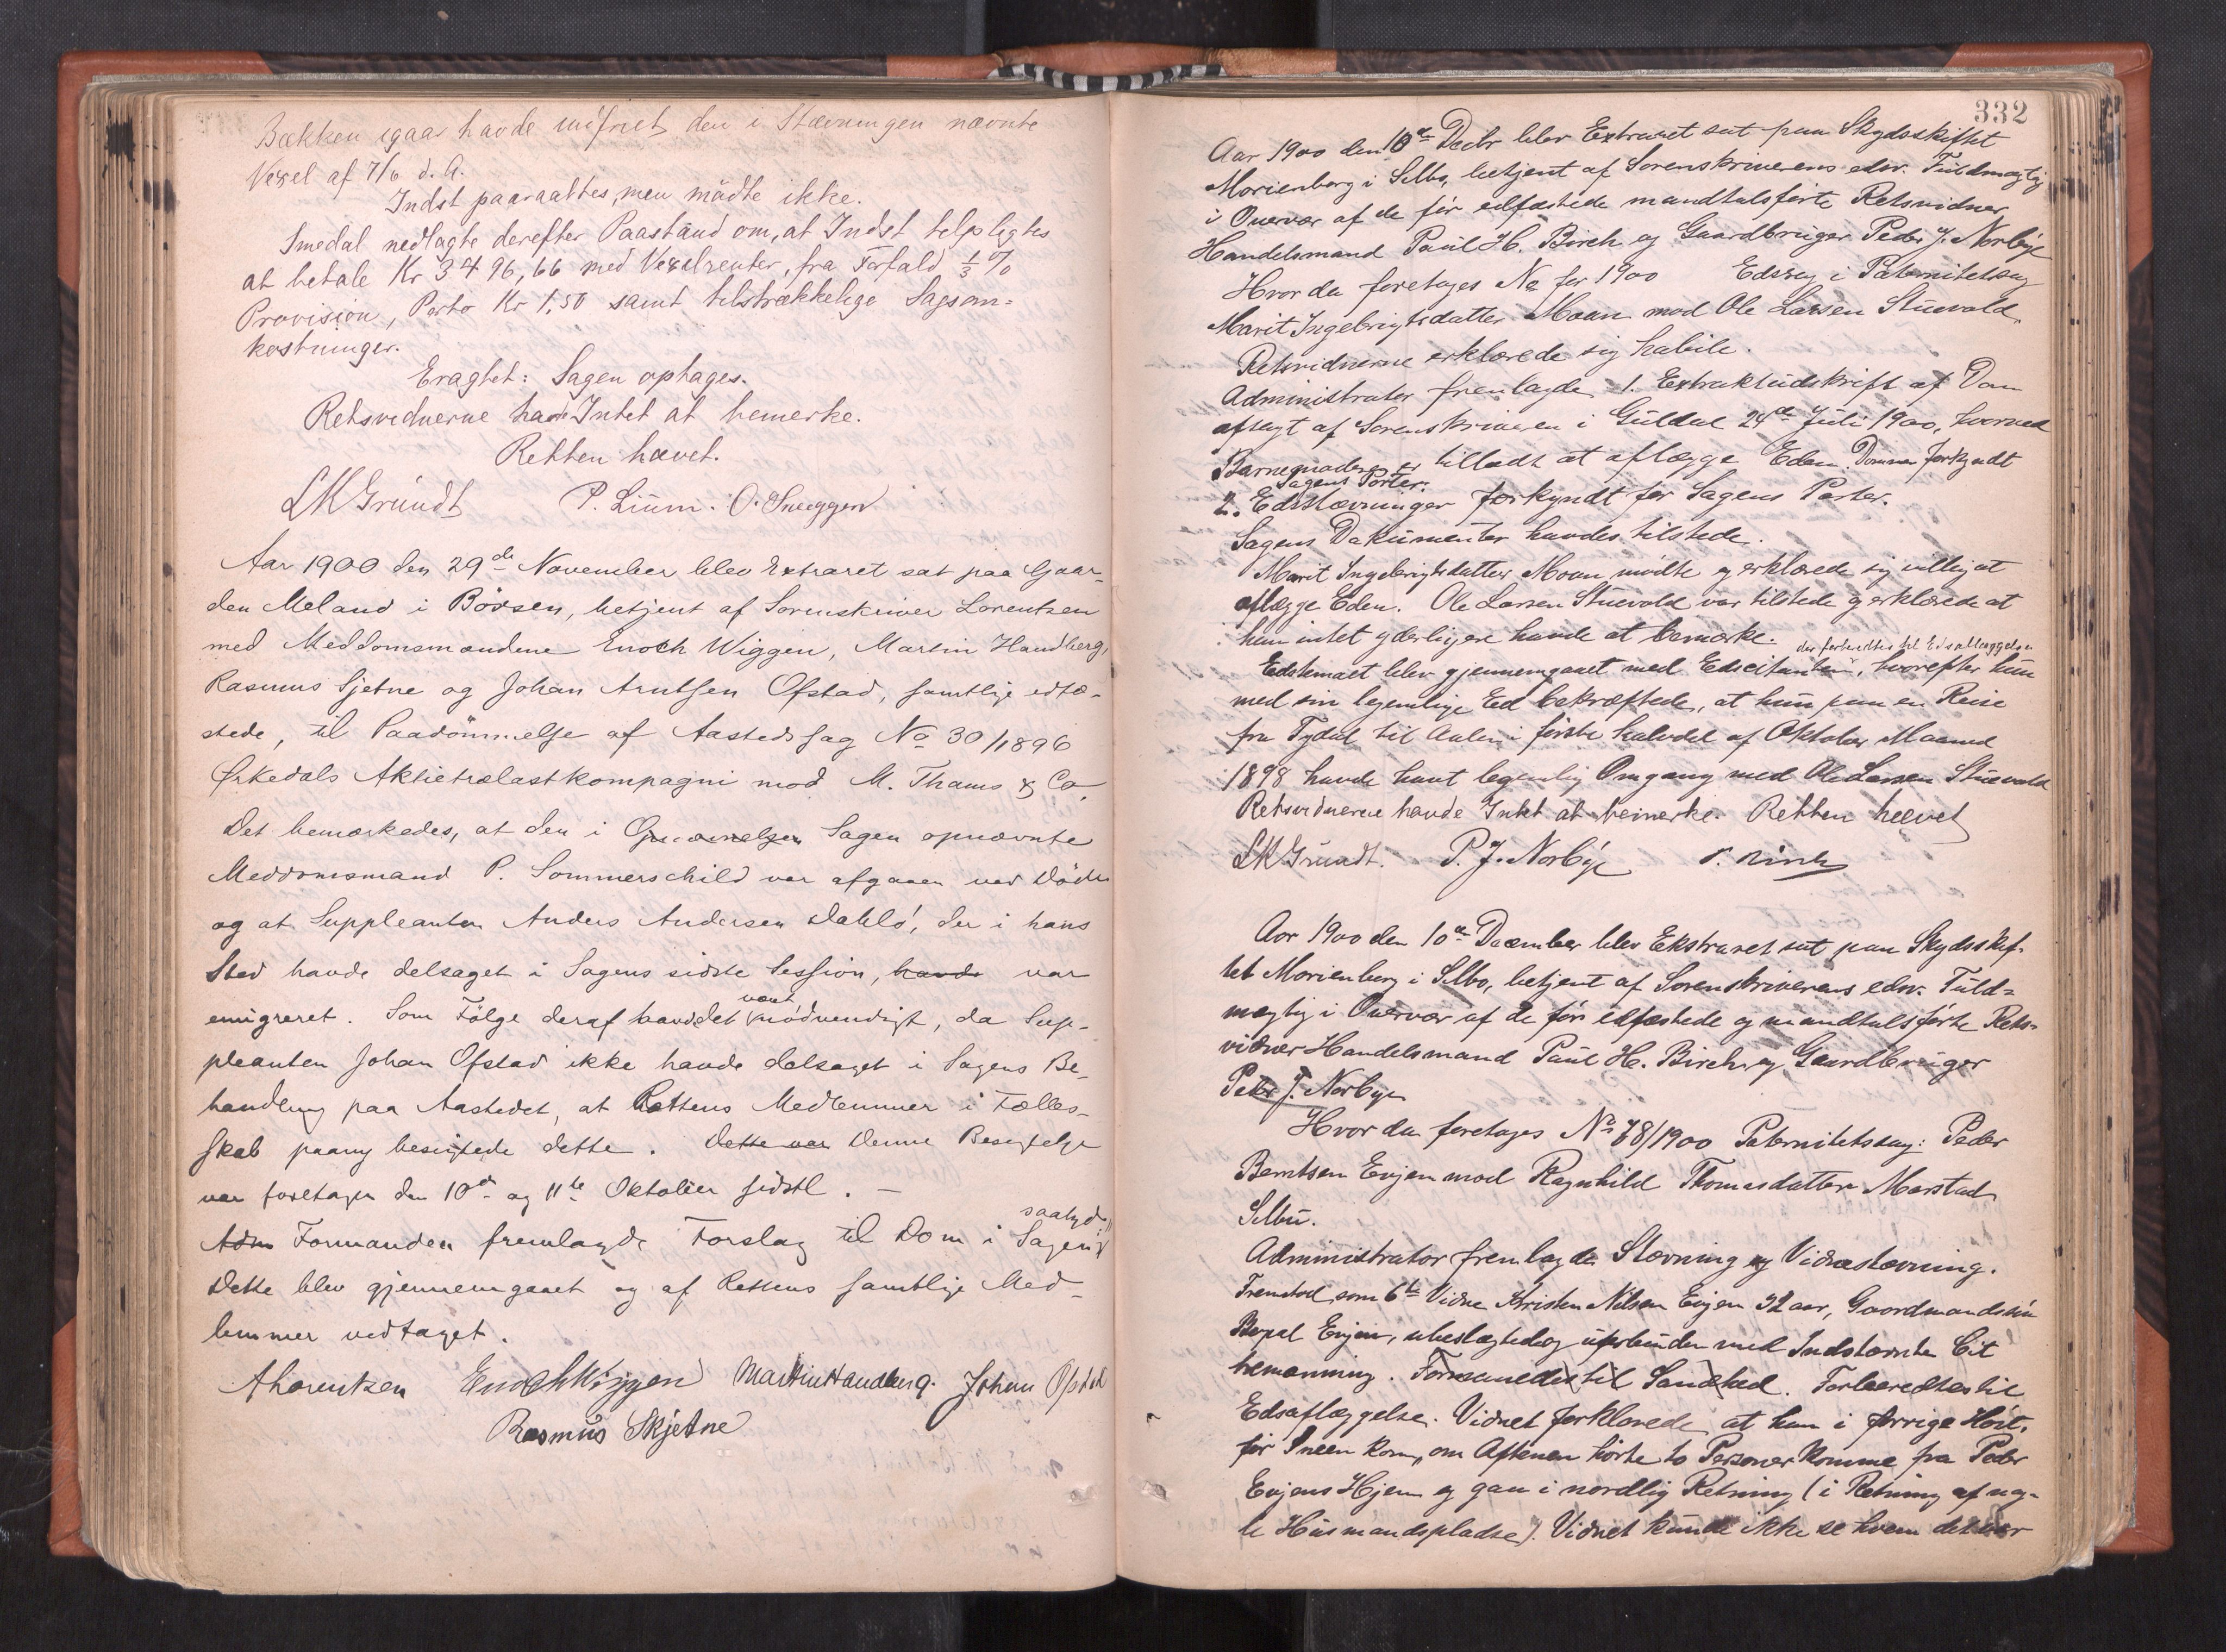 Bækken igaar havde indfriet den i Stævningen nævnte
Vexel af 7/6 d. A.
Indst paaraabtes, men mødte ikke.
Smedal nedlagde derefter Paastand om, at Indst tilpligtes
at betale Kr 3496,66 med Vexelrenter, fra Forfald, 1/3 %
Provision, Porto Kr 1,50 samt tilstrækkelige Sagsom=
kostninger.
Eragtet: Sagen optages.
Retsvidnerne havde Intet at bemerke.
Retten hævet.
LKGrundt P. Lium. O. Sneggen
Aar 1900 den 29de November blev Extraret sat paa Gaar-
den Meland i Börsen, betjent af Sorenskriver Lorentzen
med Meddomsmændene Enoch Wiggen, Martin Handberg,
Rasmus Sjetne og Johan Arntsen Ofstad, samtlige edfæ-
stede, til Paadömmelse af Aastedssag No 30/1896
Ørkedals Aktietrælastkompagni mod M. Thams & Co.
Det bemærkedes, at den i Sagen opnævnte
Meddomsmand P. Sommerschild var afgaaet ved Döden
og at Suppleanten Anders Andersen Dahlö, der i hans
Sted havde deltaget i Sagens sidste Session, havde var
emigreret. Som Fölge deraf havde det været nödvendigt, da Sup-
pleanten Johan Ofstad ikke havde deltaget i Sagens Be-
handling paa Aastedet, at Rettens Medlemmer i Fælles-
skab paany besigtede dette. Dette var Denne Besigtelse
var foretagen den 10de og 11te Oktober sidstl. —
Adm Formanden fremlagde Forslag til Dom i Sagen saalyd
Dette blev gjennemgaaet og af Rettens samtlige Med-
lemmer vedtaget.
ALorentzen Enoch Wiggen Martin Handberg. Johan Ofstad
Rasmus Skjetne
332
Aar 1900 den 10de Decbr blev Extraret sat paa Skydsskiftet
Marienborg i Selbo, betjent af Sorenskriverens edsv. Fuldmægtig
i Overvær af de før edfæstede mandtalsførte Retsvidner
Handelsmand Paul H. Birch og Gaardbruger Peder J. Norbye
Hvor da foretoges No for 1900 Edssag i Paternitetssag
Marit Ingebrigtsdatter Moan mod Ole Larsen Stuevold.
Retsvidnerne erklærede sig habile.
Administrator fremlagde 1. Extraktudskrift af Dom
afsagt af Sorenskriveren i Guldal 24de Juli 1900, hvorved
Barnemoderen er tilladt at aflægge Eden. Dommen forkyndt
Sagens Parter.
2. Edsstævninger forkyndt for Sagens Parter.
Sagens Dokumenter havdes tilstede.
Marit Ingebrigtsdatter Moan mødte og erklærede sig villig at
aflægge Eden. Ole Larsen Stuevold var tilstede og erklærede at
han intet yderligere havde at bemærke.
der forberedtes til Edsaflæggelsen
Edstemaet blev gjennemgaaet med Edscitantinden, hvorefter hun
med sin legemlige Ed bekræftede, at hun paa en Reise
fra Tydal til Aalen i første halvdel af Oktober Maaned
1898 havde havt legemlig Omgang med Ole Larsen Stuevold
Retsvidnerne havde Intet at bemerke. Retten hævet
LKGrundt. P. J. Norbye P. Birch
Aar 1900 den 10de December blev Ekstraret sat paa Skydsskif-
tet Marienborg i Selbo, betjent af Sorenskriverens edsv. Fuld=
mægtig i Overvær af de før edfæstede og mandtalsførte Rets-
vidner Handelsmand Paul H. Birch og Gaardbruger
Peder J. Norbye
Hvor da foretoges No 78/1900 Paternitetssag: Peder
Berntsen Evjen mod Ragnhild Thomasdatter Marstad
Selbu.
Administrator fremlagde Stævning og Vidnestævning.
Fremstod som 6te Vidne Kristen Nilsen Evjen 32 aar, Gaardmandssøn
Bopæl Evjen, ubeslægtet og uforbunden med Indstævnte Cit
bemanning. Formanedes til Sandhed. Forberedtes til
Edsaflæggelse. Vidnet forklarede, at han i forrige Høst,
før Sneen kom, om Aftenen hørte to Personer komme fra Peder
Evjens Hjem og gaa i nordlig Retning (i Retning af og-
le Husmandspladse). Vidnet kunde ikke se hvem det var